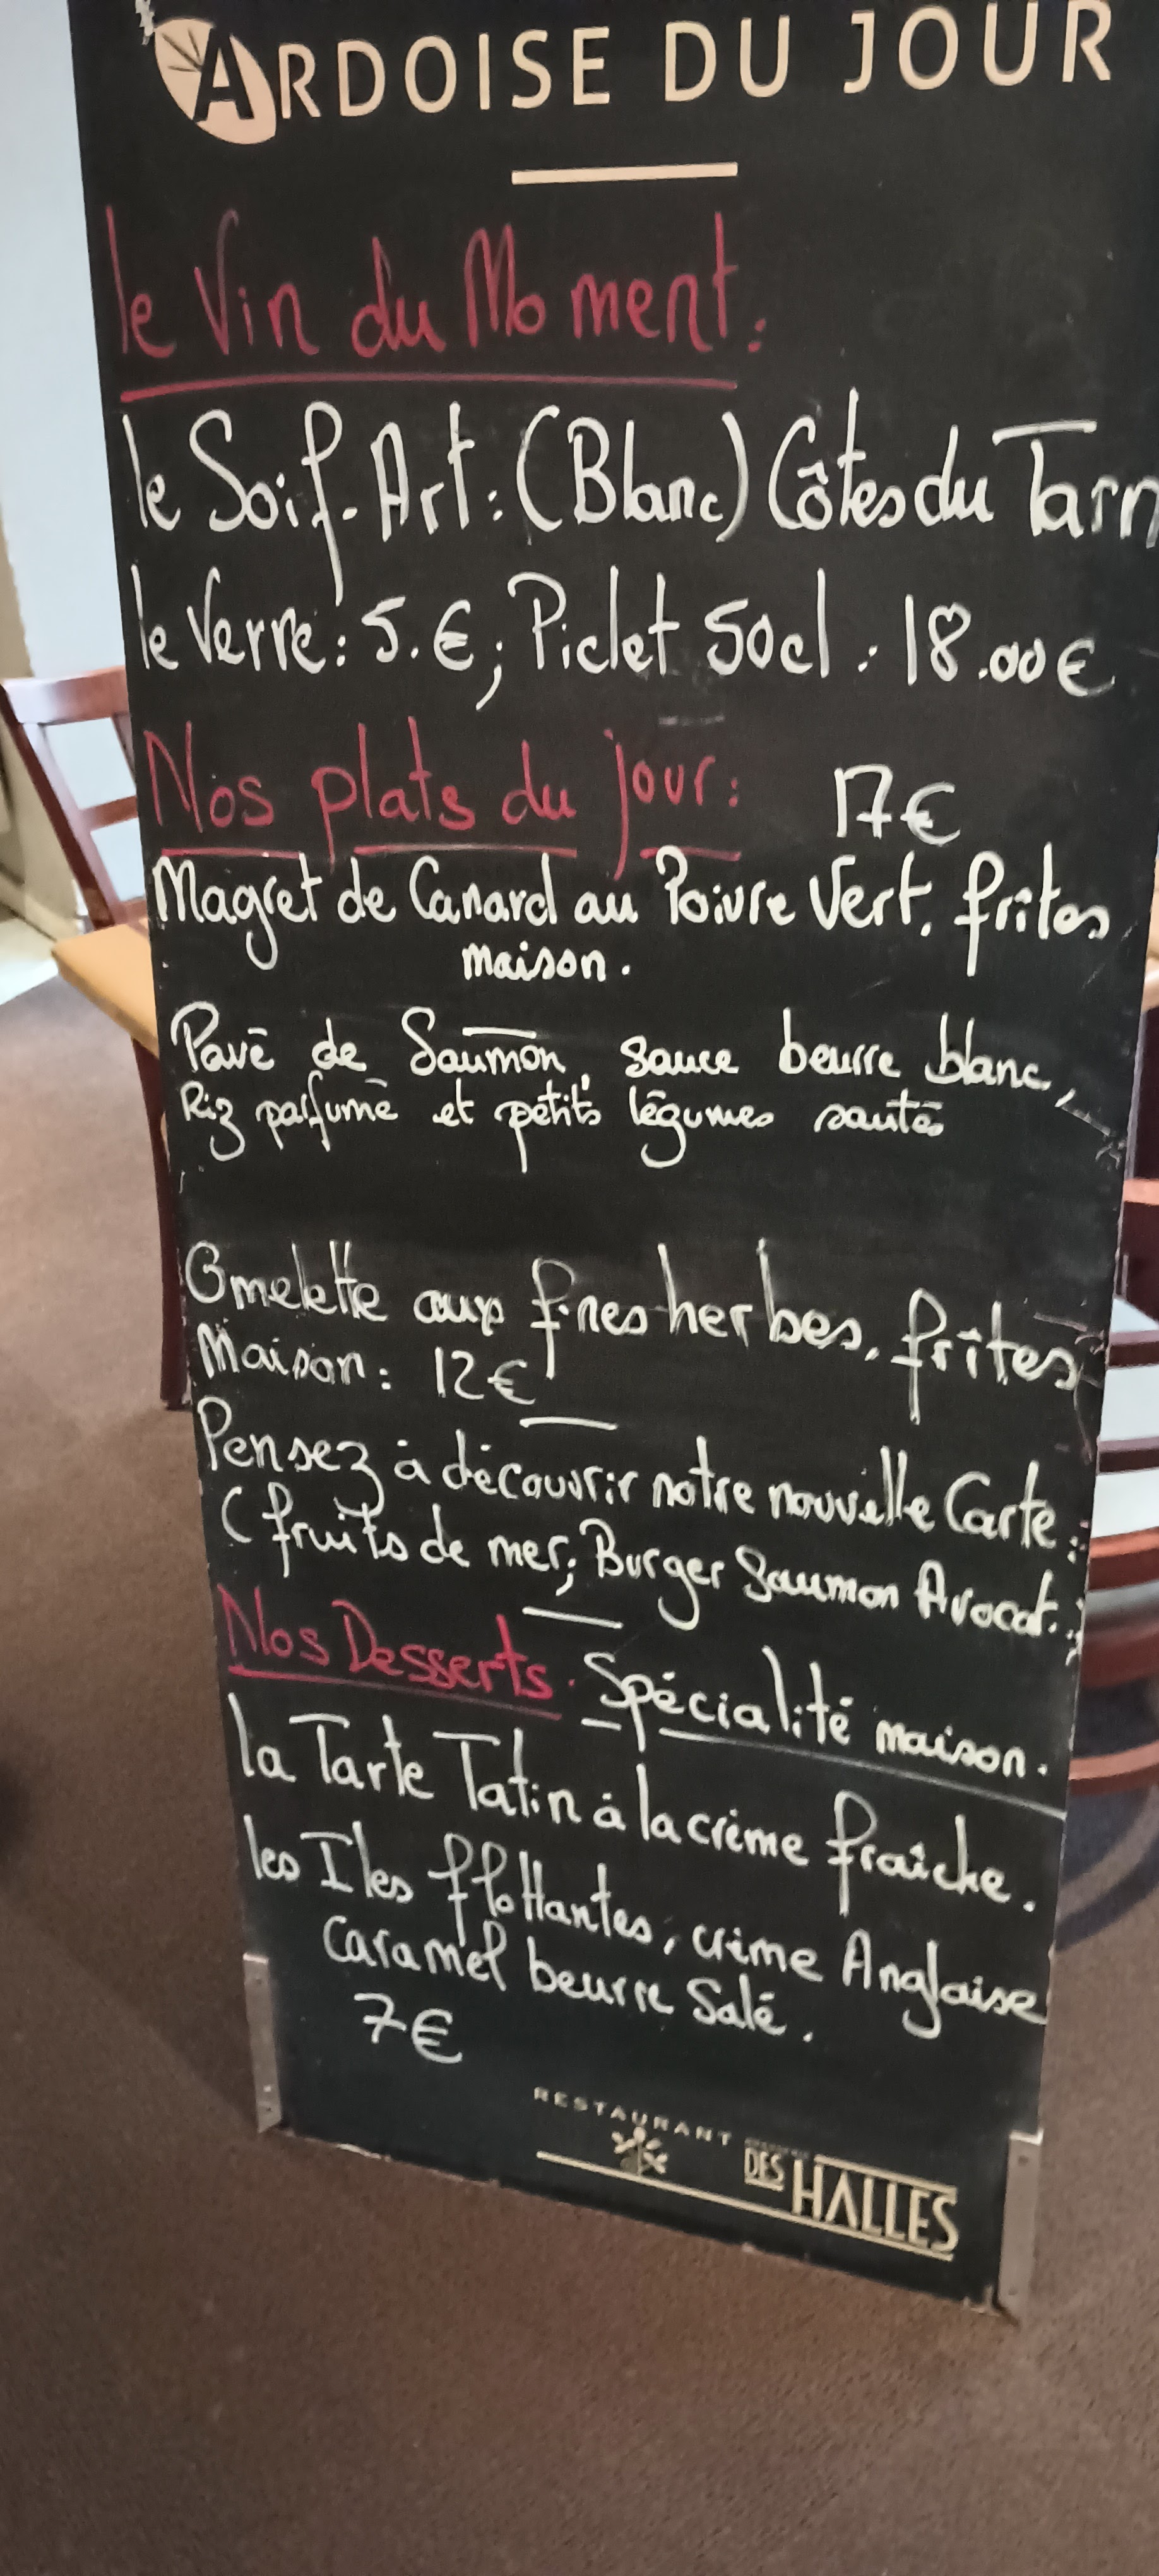 ARDOISE DU JOUR
le Vin du Moment:
le Soif-Art: (Blanc) Côtes du Tarn
le Verre: 5.€; Pichet 50cl: 18.00€
Nos plats du jour: 17€
Magret de Canard au Poivre Vert, frites
maison.
Pavé de Saumon, sauce beurre blanc,
Riz parfumé et petits légumes sautés
Omelette aux fines herbes, frîtes
Maison: 12€
Pensez à découvrir notre nouvelle Carte:
(fruits de mer; Burger Saumon Avocat.;
Nos Desserts. Spécialité maison.
la Tarte Tatin à la crème fraîche.
les Iles flottantes, crème Anglaise
Caramel beurre Salé.
7€
RESTAURANT
DES HALLES